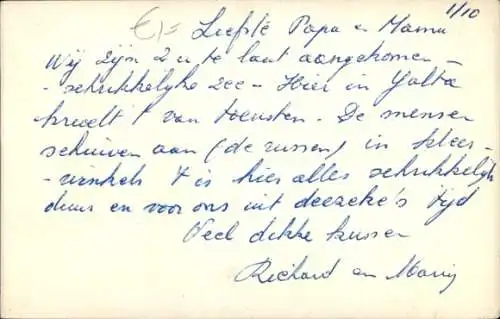 1/10
Liefste Papa en Mama
Wij zijn 2 u te laat aangekomen
- schrikkelijke zee - Hier in Yalta
krioelt 't van toeristen. De mensen
schuiven aan (de russen) in kleer-
- winkels 't is hier alles schrikkelijk
duur en voor ons uit deezeke's tijd
Veel dikke kussen
Richard en